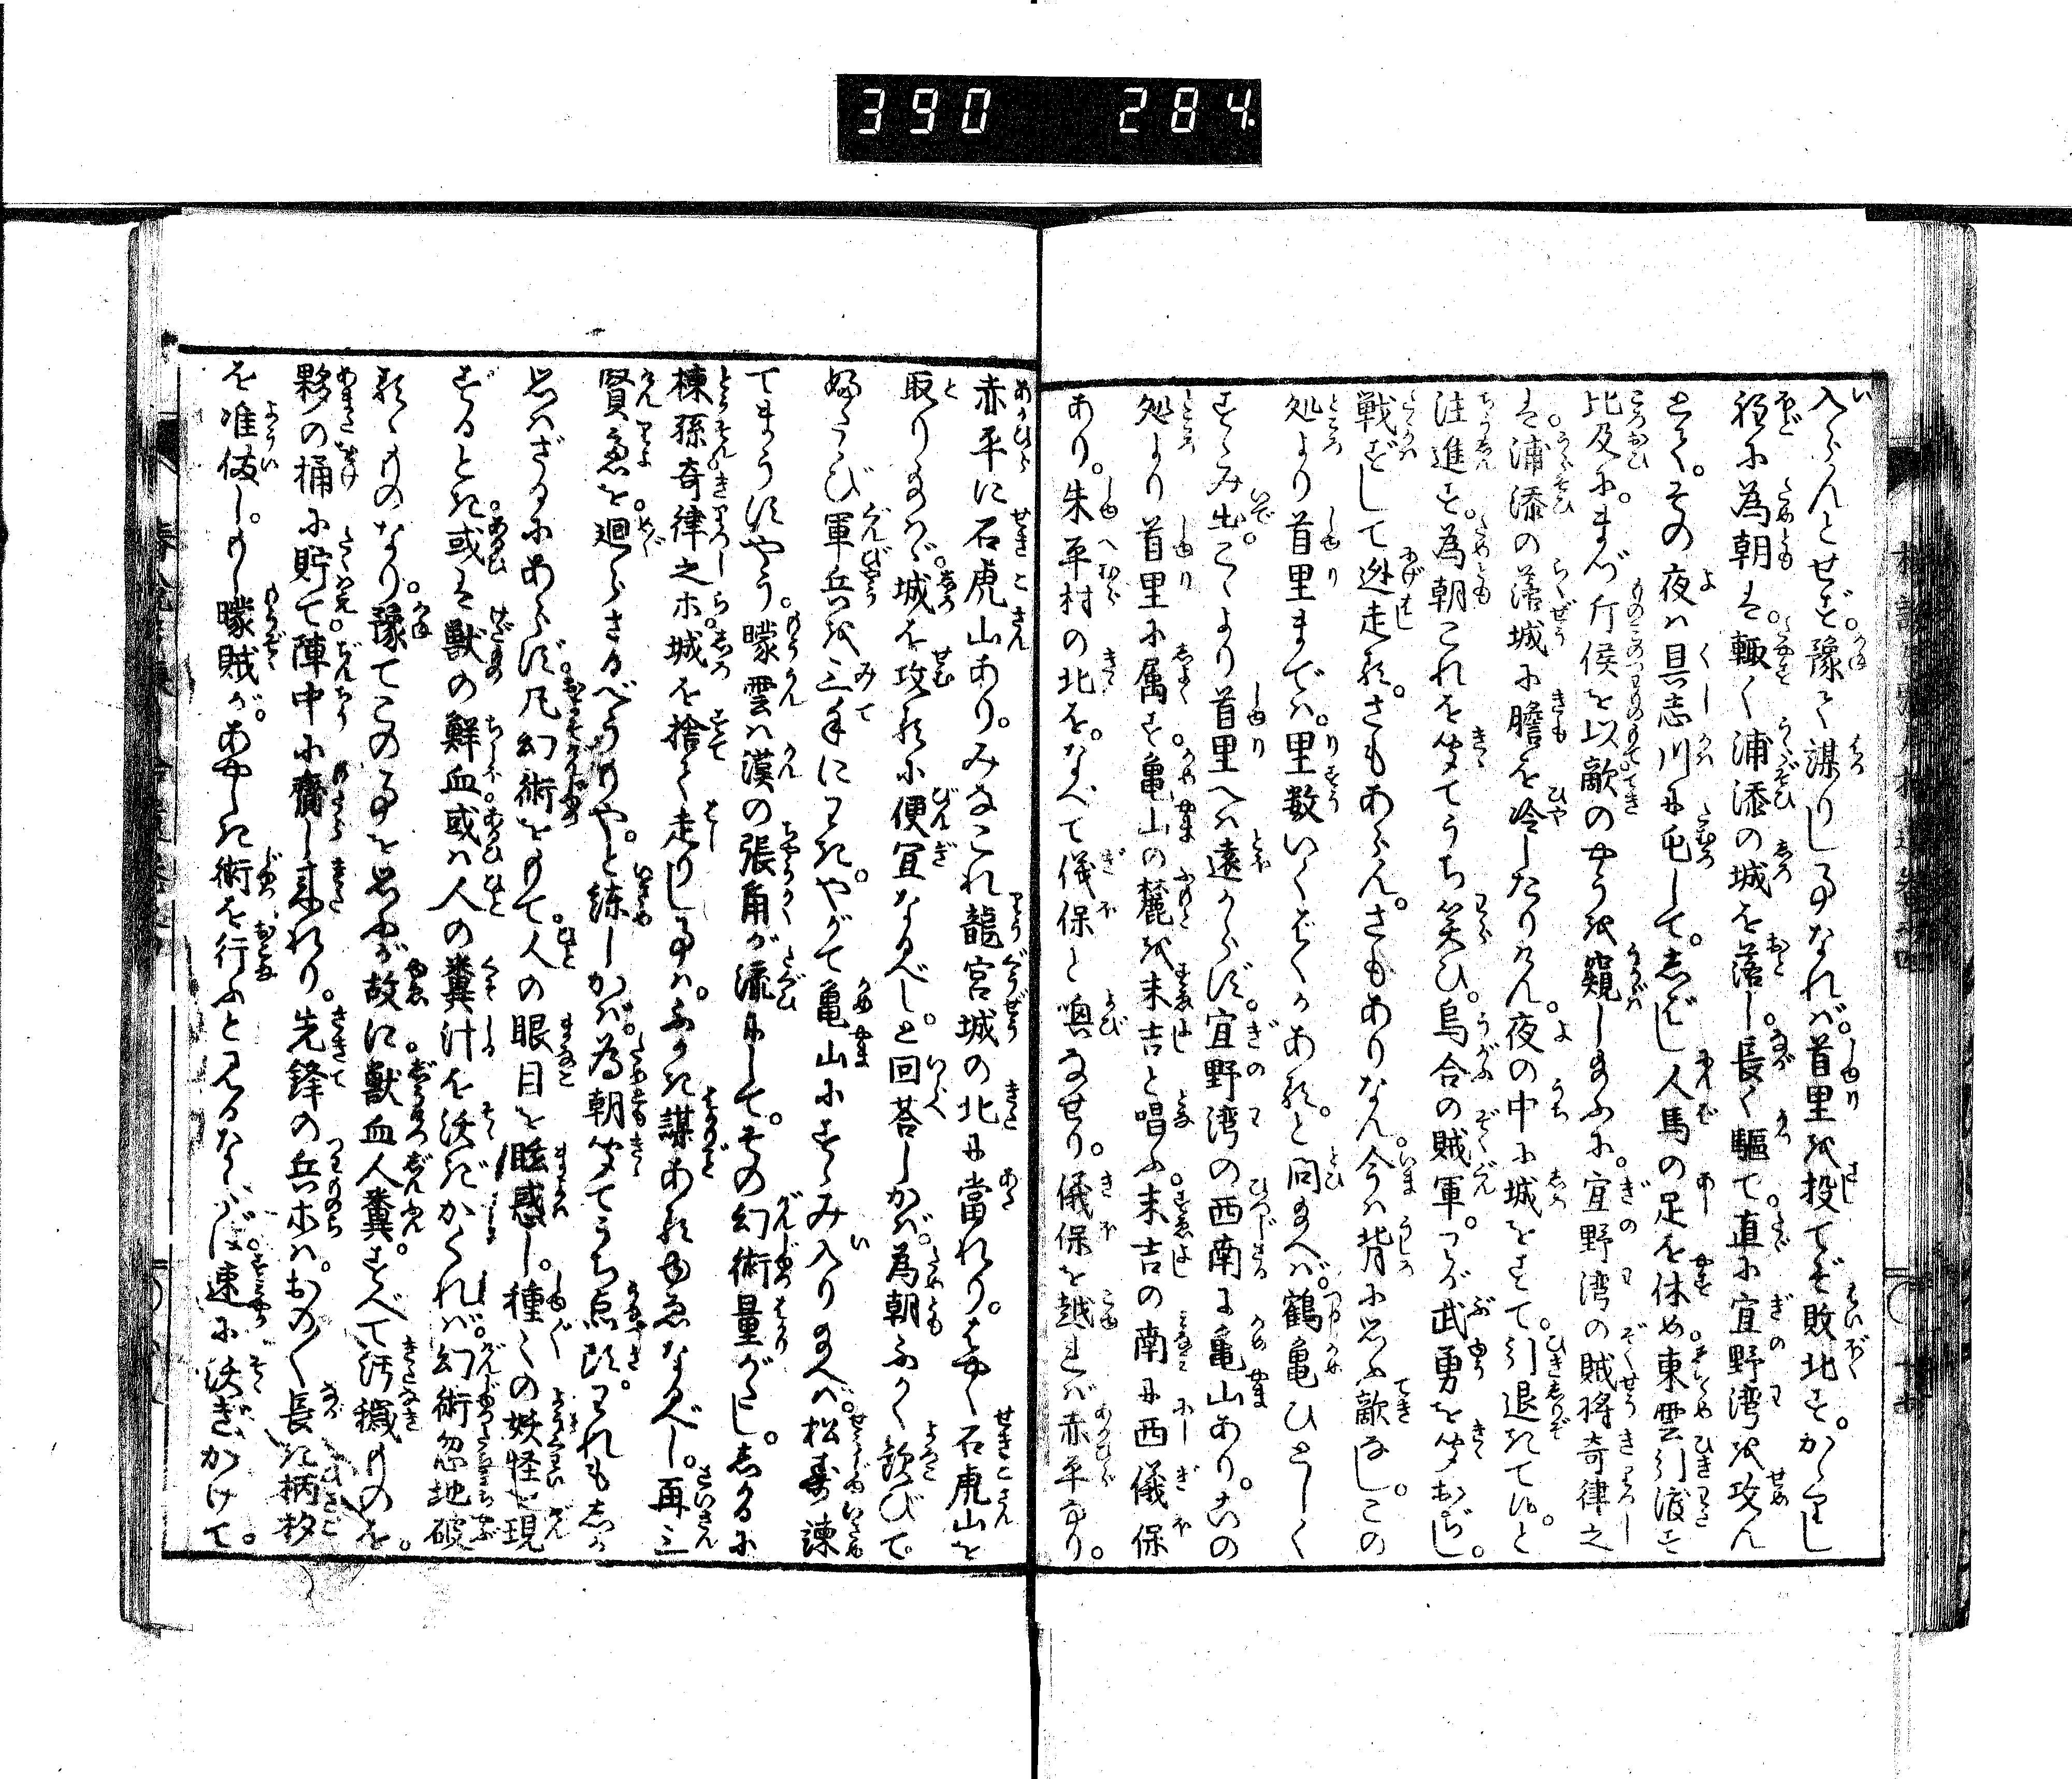 390 284.
入らんとせず。豫て謀りし事なれば。首里を投てぞ敗北す。かゝりし
程に為朝は。輙く浦添の城を落し。長く驅て。直に宜野湾を攻ん
とて。その夜は具志川に屯して。しばし人馬の足を休め。東雲引渡す
比及に。まづ斥候を以敵のやうを窺し給ふに。宜野湾の賊将奇律之
は。浦添の落城に膽を冷したりけん。夜の中に城をすて。引退きて候。と
注進す。為朝これを聞てうち笑ひ。烏合の賊軍。わが武勇を聞おぢし。
戦ずして迯走る。さもあらん。さもありなん。今は背に思ふ敵なし。この
処より首里までは。里数いくばくかある。と問給へば。鶴亀ひとしく
すゝみ出。こゝより首里へは遠からず。宜野湾の西南に亀山あり。この
処より首里に属す。亀山の麓を末吉と唱ふ。末吉の南に西儀保
あり。朱平村の北を。なべて儀保と喚なせり。儀保を越れば赤平なり。
赤平に石虎山あり。みなこれ龍宮城の北に當れり。はやく石虎山を
取り給はゞ。城を攻るに便宜なるべし。と回荅しかば。為朝ふかく歓びて。
ふたゝび軍兵を三手にわけ。やがて亀山にすゝみ入り給へば。松壽諫
てまうすやう。曚雲は漢の張角が流にして。その幻術量がたし。しかるに
棟孫奇律之ホ城を捨て走りし事は。ふかき謀あるゆゑなるべし。再三
賢慮を廻らさるべうもや。と練しかば。為朝聞てうち点頭。われも亦しか
思はざるにあらず。凡幻術をもて。人の眼目を眩惑し。種〻の妖怪を現
ずるとき。或は獣の鮮血。或は人の糞汁を沃ぎかくれば。幻術忽地破
るゝものなり。豫てこの事を思ふが故に。獣血人糞。すべて汚穢ものを。
夥の桶に貯て陣中に齎し来れり。先鋒の兵ホは。おの〱長き柄杓
を准備し。もし曚賊が。あやしき術を行ふと見るならば。速に沃ぎかけて。